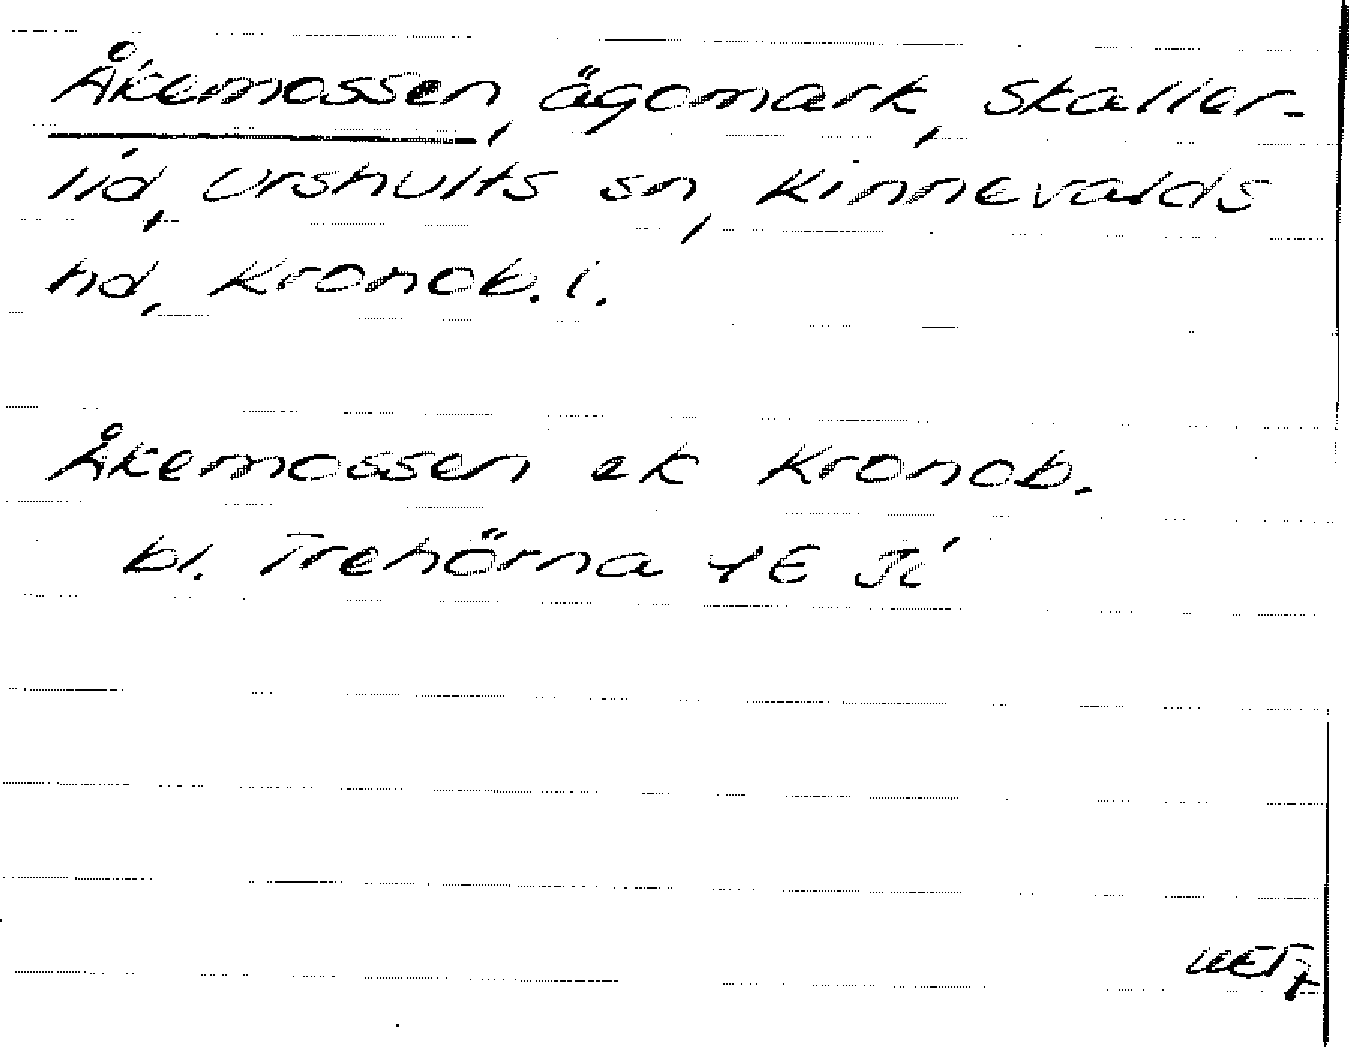 Åkemossen, ägomark, Skaller-
lid, Urshults sn, Kinnevalds
hd, Kronob. l.
Åkemossen ek Kronob.
bl. Trehörna 4E